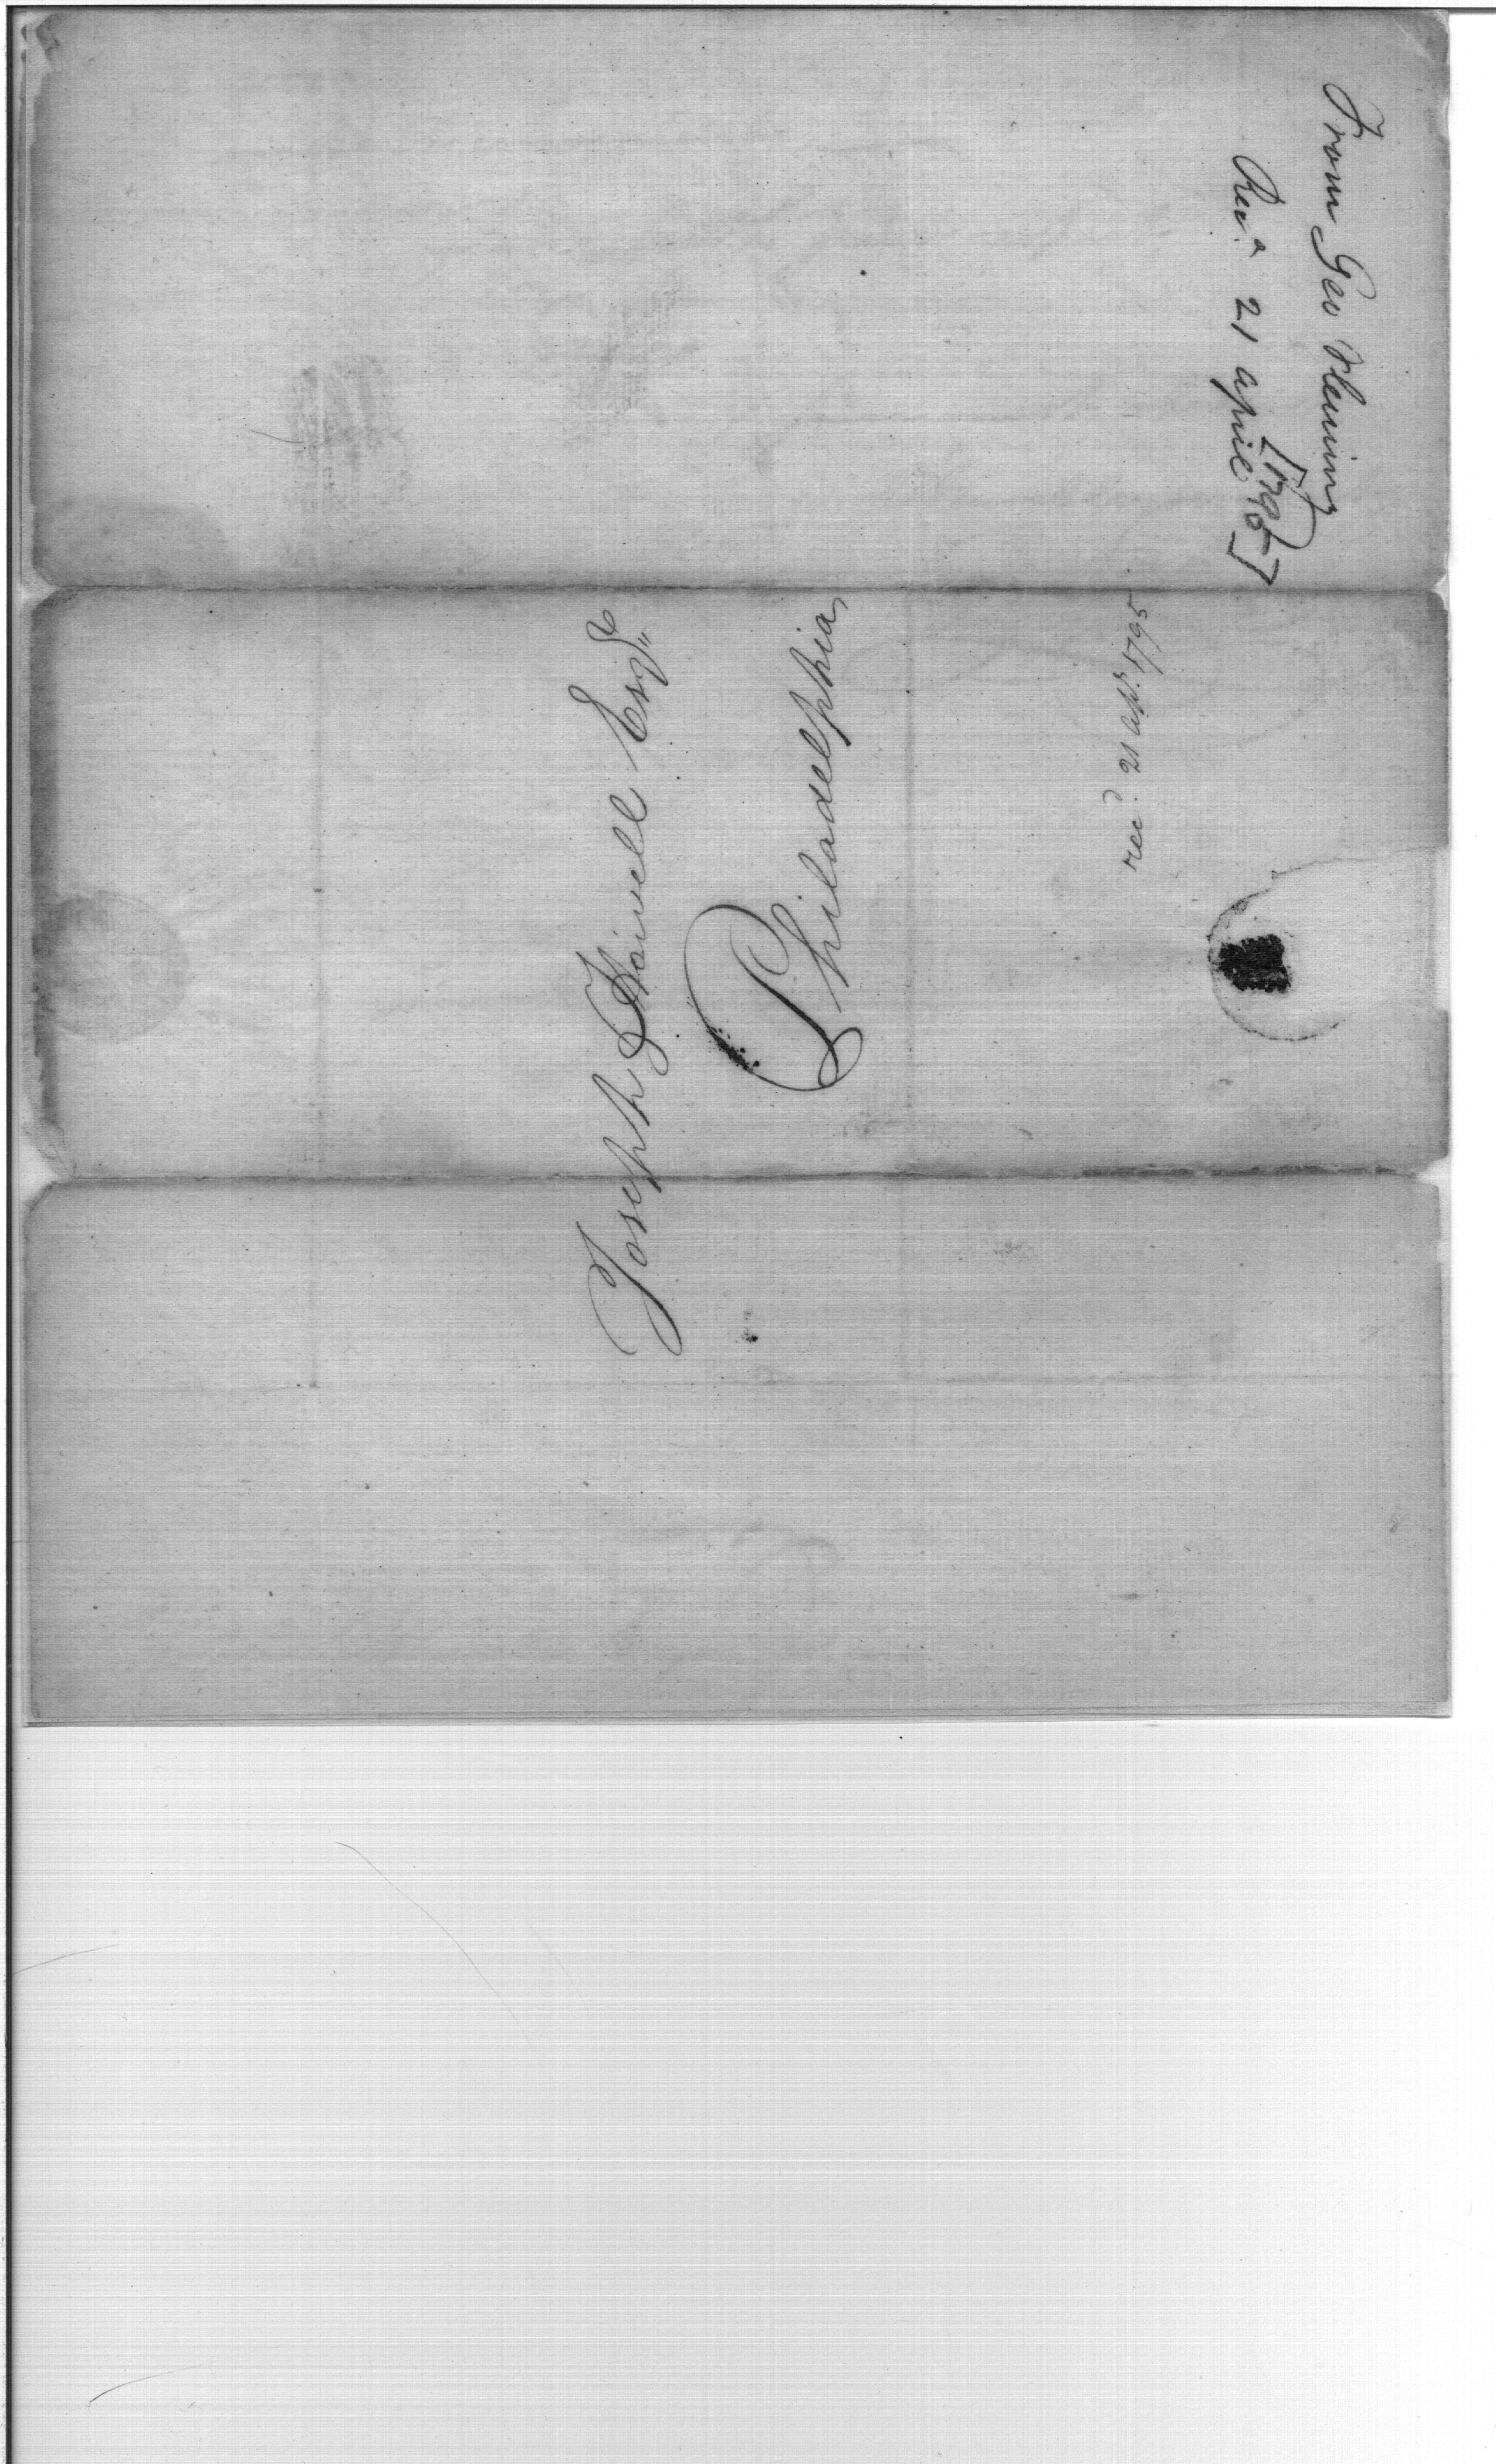 From Geo Fleming
Recd. 21 april [1795]
Joseph Howell Esqr.
Philadelphia
recd. 21 apl. 1795